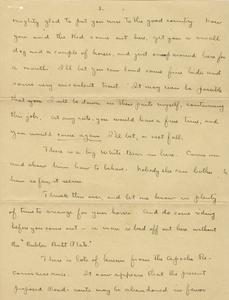 2.
mighty glad to put you wise to the good country. Now
you and the Kid come out here, get you a small
dog and a couple of horses, and just around here for
a month. I'll bet you can land some fine hides and
some very excellent trout. It may even be possible
that you I will be down in these parts myself, continuing
this job. At any rate, you would have a fine time, and
you would come again I'll bet, or next fall.
There is a big White Bear in here. Come in
and show him how to behave. Nobody else can bother
him so far it seems.
Think this over, and let me know in plenty
of time to arrange for your horses. And do some riding
before you come out - a man is bad off out here without
the "Rubber Butt Plate".
There is lots of lessons from the Apache Re-
connaissance. It now appears that the present
proposed Road-route may be abandoned in favor